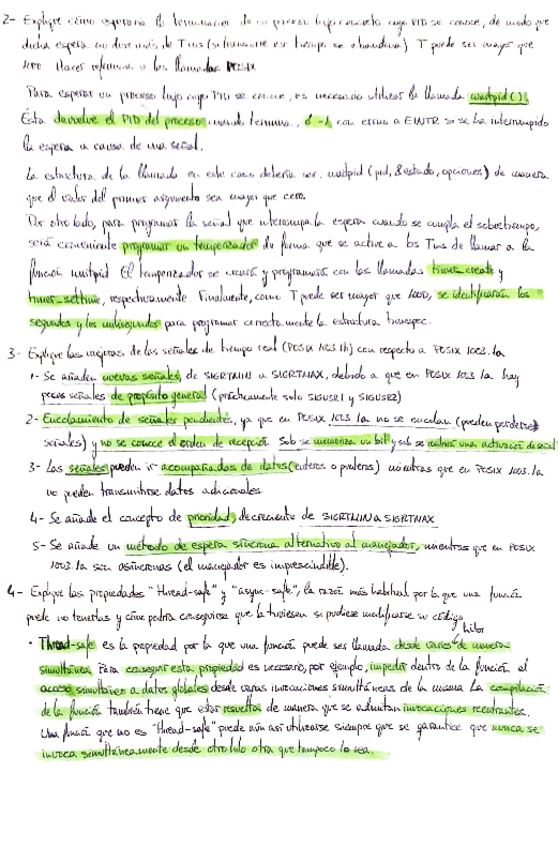 2- Explique cómo esperaría la terminación de un proceso hijo concreto cuyo PID se conoce, de modo que
dicha espera no dure más de T ms (si transcurre ese tiempo se abandona) T puede ser mayor que
1000 Hacer referencia a las llamadas POSIX
Para esperar un proceso hijo cuyo PID se conoce, es necesario utilizar la llamada waitpid().
Esta devuelve el PID del proceso cuando termina, ó -1, con errno a EINTR si se ha interrumpido
la espera a causa de una señal.
La estructura de la llamada en este caso debería ser: waitpid (pid, &estado, opciones) de manera
que el valor del primer argumento sea mayor que cero.
Por otro lado, para programar la señal que interrumpa la espera cuando se cumpla el sobretiempo,
será conveniente programar un temporizador de forma que se active a los T ms de llamar a la
función waitpid El temporizador se creará y programará con las llamadas timer_create y
timer_settime, respectivamente Finalmente, como T puede ser mayor que 1000, se identificarán los
segundos y los milisegundos para programar correctamente la estructura timespec.
3- Explique las mejoras de las señales de tiempo real (POSIX 1003.1b) con respecto a POSIX 1003.1a
1- Se añaden nuevas señales, de SIGRTMIN a SIGRTMAX, debido a que en POSIX 1003.1a hay
pocas señales de propósito general (prácticamente solo SIGUSR1 y SIGUSR2)
2- Encolamiento de señales pendientes, ya que en POSIX 1003.1a no se encolan (pueden perderse
señales) y no se conoce el orden de recepción Solo se memoriza un bit y solo se realiza una activación de señal
3- Las señales pueden ir acompañadas de datos (enteros o punteros) mientras que en POSIX 1003.1a
no pueden transmitirse datos adicionales
4- Se añade el concepto de prioridad, decreciente de SIGRTMIN a SIGRTMAX
5- Se añade un método de espera síncrona alternativo al manejador, mientras que en POSIX
1003.1a son asíncronas (el manejador es imprescindible).
4- Explique las propiedades "thread-safe" y "async-safe", la razón más habitual por la que una función
puede no tenerlas y cómo podría conseguirse que la tuviesen si pudiese modificarse su código
• Thread-safe es la propiedad por la que una función puede ser llamada desde varios hilos de manera
simultánea. Para conseguir esta propiedad es necesario, por ejemplo, impedir dentro de la función el
acceso simultáneo a datos globales desde varias invocaciones simultáneas de la misma La compilación
de la función también tiene que estar resuelta de manera que se admitan invocaciones recurrentes.
Una función que no es "thread-safe" puede aún así utilizarse siempre que se garantice que nunca se
invoca simultáneamente desde otro hilo otra que tampoco lo sea.